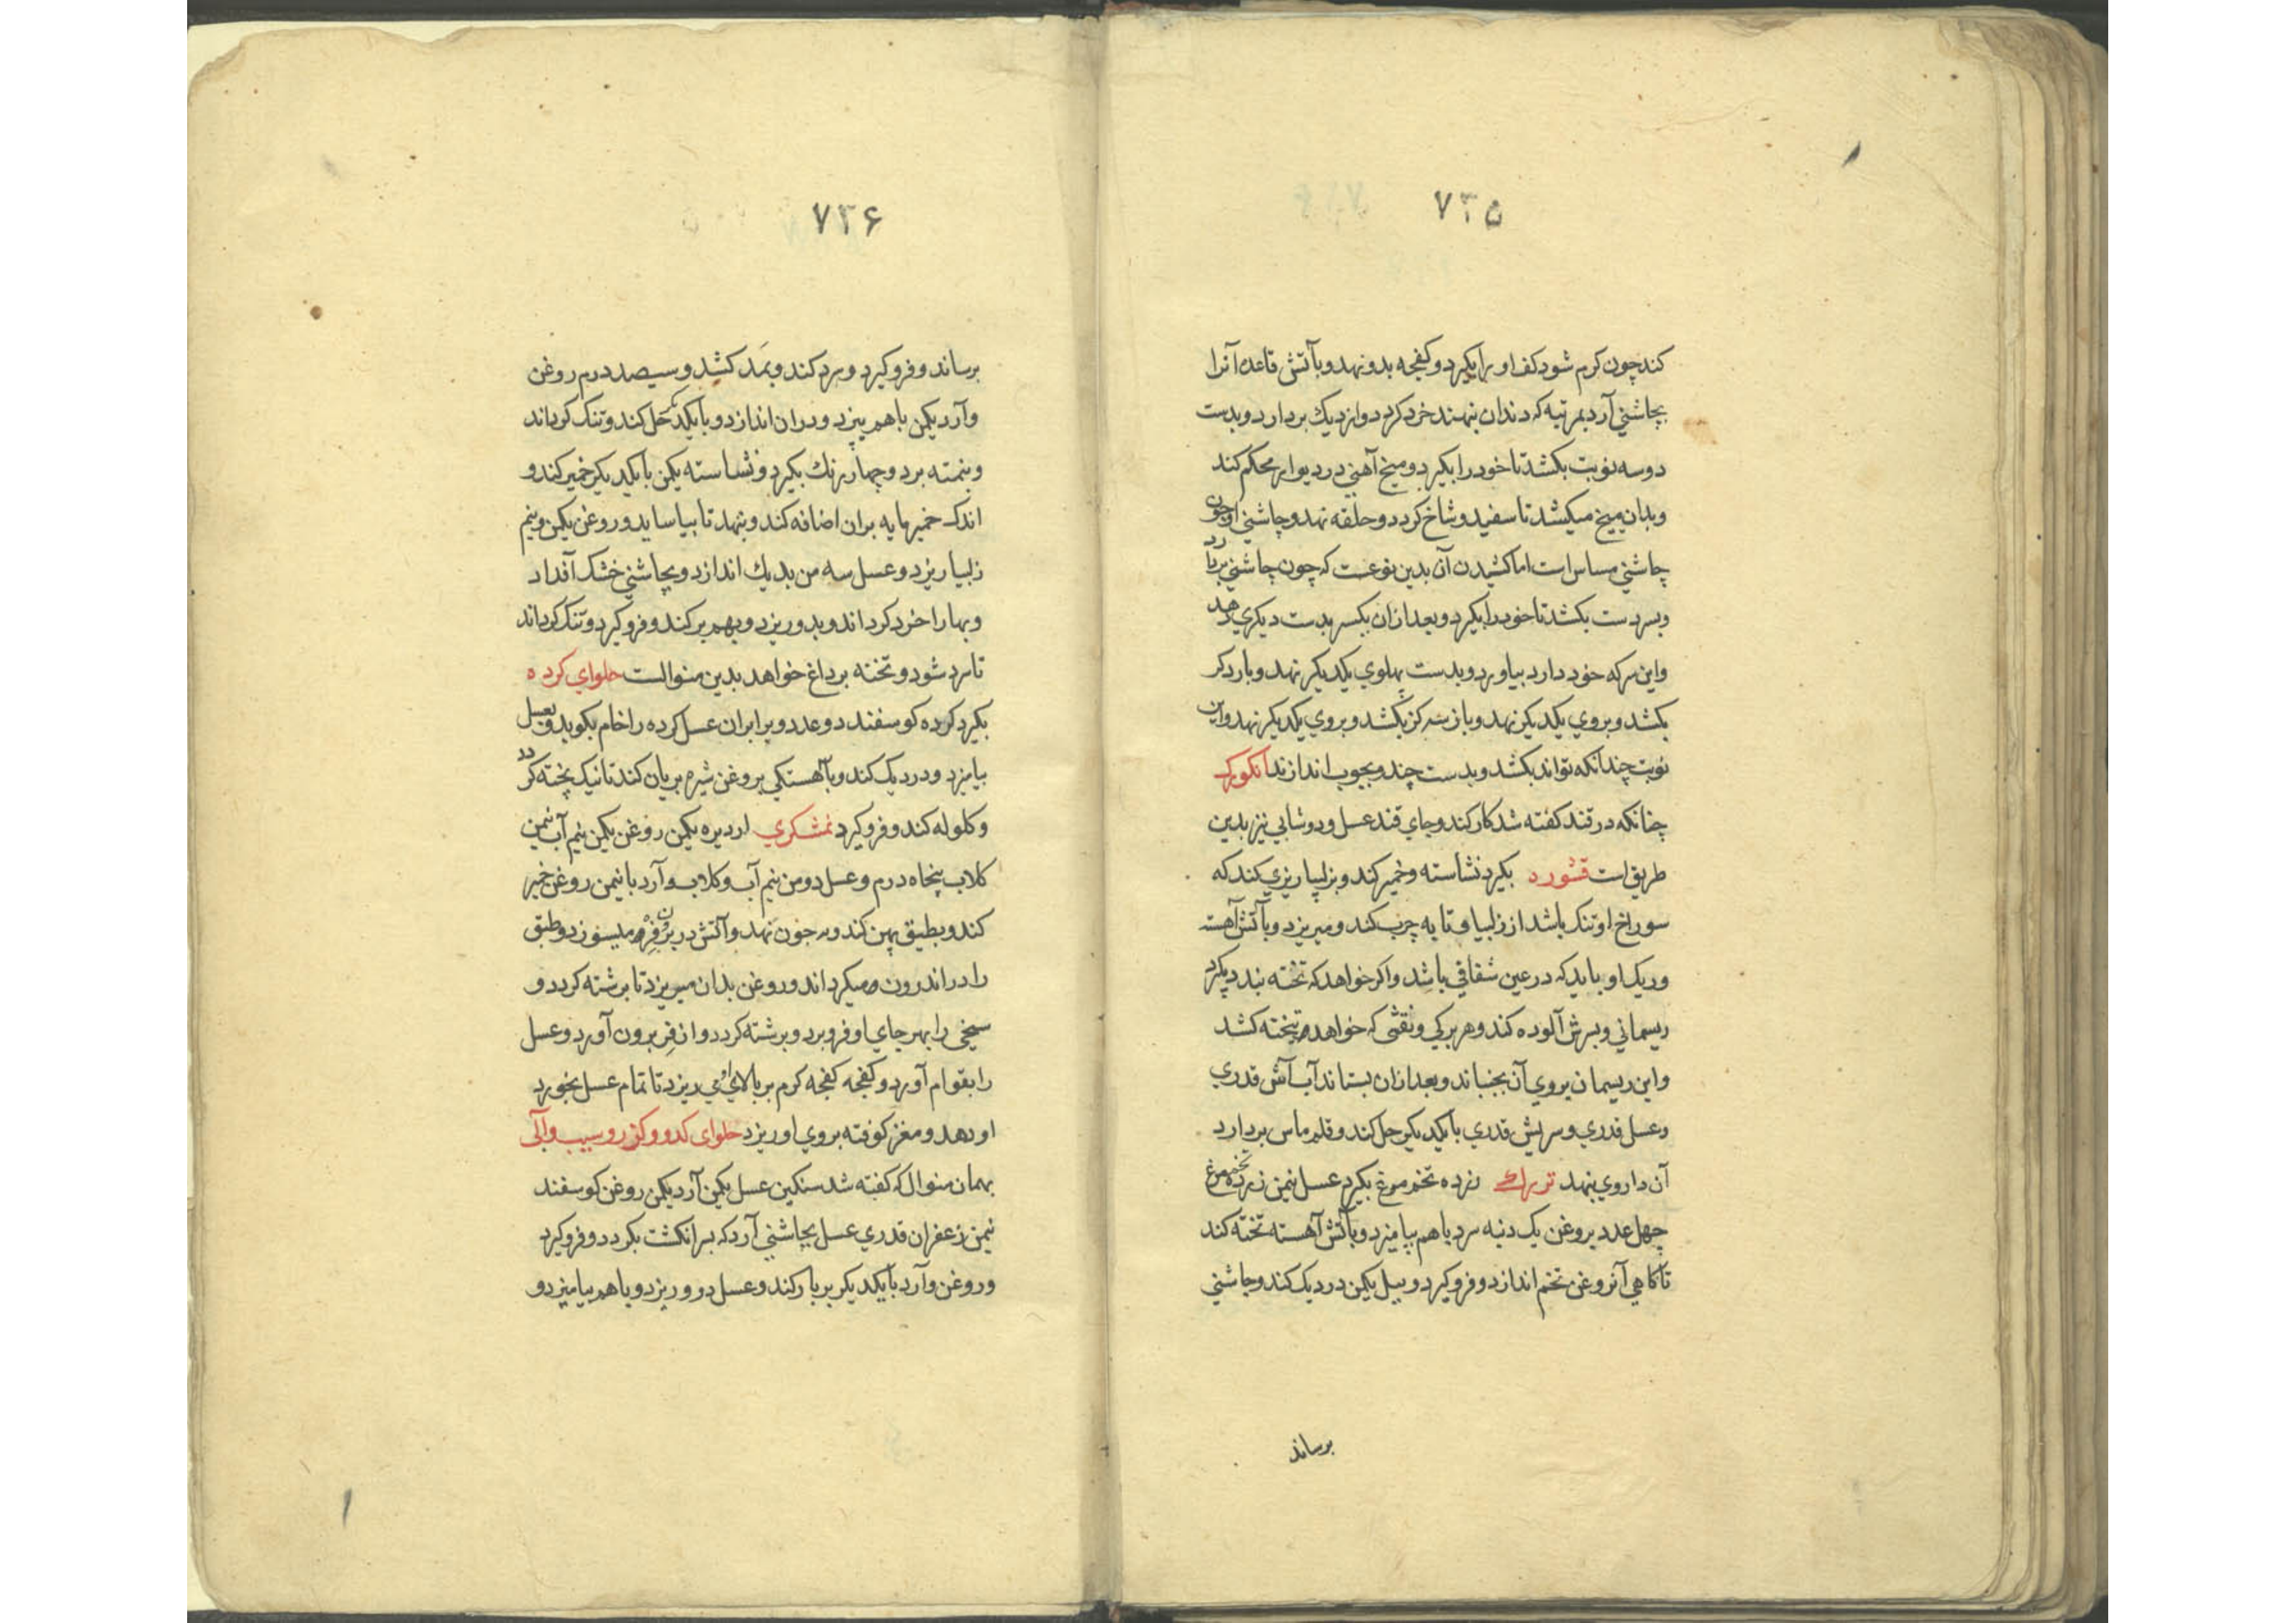 ۷۳۵
کند چون کرم شود کف او را بکیرد و کفجه بدو نهد و بآتش قاعده آنرا
بچاشنی آرد بمرتبه که دندان بنهند خرد کردد و از دیك بردارد و بدست
دو سه نوبت بکشد تا خود را بکیرد و میخ آهنی در دیوار محکم کند
و بدان میخ میکشد تا سفید و شاخ کردد و حلقه نهد و چاشنی او چون
چاشنی مساس است اما کشیدن آن بدین نوعست که چون چاشنی بردارد
و بسر دست بکشد تا خود را بکیرد و بعد ازان یکسر بدست دیکری دهد
و این سر که خود دارد بیاورد و بدست پهلوی یکدیکر نهد و بار دکر
بکشد و بروی یکدیکر نهد و باز سه کز بکشد و بروی یکدیکر نهد و این
نوبت چندانکه تواند بکشد و بدست چند و بچوب اندازند انکورک
چنانکه در قند کفته شد کار کند و جای قند عسل و دوشابی نیز بدین
طریق است قشورد بکیرد نشاسته و خمیر کند و بزلیبا ریزی کند که
سوراخ او تنک باشد از زلبیا و تابه چرب کند و میریزد و بآتش آهسته
و ریک او باید که در عین شفافی باشد و اکر خواهد که تخته بندد بکیرد
ریسمانی و بسرش آلوده کند و هر برکی و نقشی که خواهد بر تخته کشد
و این ریسمان بروی آن بجنباند و بعد ازان بستاند آب آش قدری
و عسل قدری و سریش قدری با یکدیکر حل کند و قلم ماس بردارد
آن داروی بنهد زرده تخم مرغ بکیرد عسل نیمن زرده تخم مرغ
چهل عدد بروغن یک دنبه سرد با هم بیامیزد و بآتش آهسته تخته کند
تا کاهی آن روغن تخم اندازد و فرو کیرد و بیل یکمن در دیک کند و چاشنی
برساند
۷۳۶
برساند و فرو کیرد و سرد کند و بمد کشد و سیصد درم روغن
و آرد یکمن با هم بپزد و دران اندازد و با یکدیکر حل کند و تنک کرداند
و بنمته برد و چهار رنك بکیرد و نشاسته یکمن با یکدیکر خمیر کند و
اندک خمیر مایه بران اضافه کند و بنهد تا بیاساید و روغن یکمن و نیم
زلبیا ریزد و عسل سه من بدیك اندازد و بچاشنی خشک آفداد
و بها را خرد کرداند و بدو ریزد و بهم بر کند و فرو کیرد و تنک کرداند
تا سرد شود و تخته برداغ خواهد بدین منوالست حلوای کرده
بکیرد کرده کوسفند دو عدد و برابر ان عسل کرده را خام بکوبد و بعسل
بیامیزد و در دیک کند و بآهستکی بروغن شیره بریان کند تا نیک پخته کردد
و کلوله کند و فرو کیرد نمشکری ارد بره یکمن روغن یکمن نیم آب نیمن
کلاب پنجاه درم و عسل دو من نیم آب و کلاب و آرد با نیمن روغن خمیر
کند و بطبق پهن کند و بر خون نهد و آتش در بن فرن میسوزد و طبق
را در اندرون میکرداند و روغن بدان میریزد تا برشته کردد و
سیخی را بهر جای او فرو برد و برشته کردد و از فرن برون آورد و عسل
را بقوام آورد و کفجه کفجه کرم بر بالای او می ریزد تا تمام عسل بخورد
او دهد و مغز کوفته بروی او ریزد حلوای کدو و کزر و سیب و آلی
بهمان منوال که کفته شد سنکین عسل یکمن آرد یکمن روغن کوسفند
نیمن زعفران قدری عسل بچاشنی آرد که بر انکشت بکردد و فرو کیرد
و روغن و آرد با یکدیکر بر بار کند و عسل درو ریزد و با هم بیامیزد و